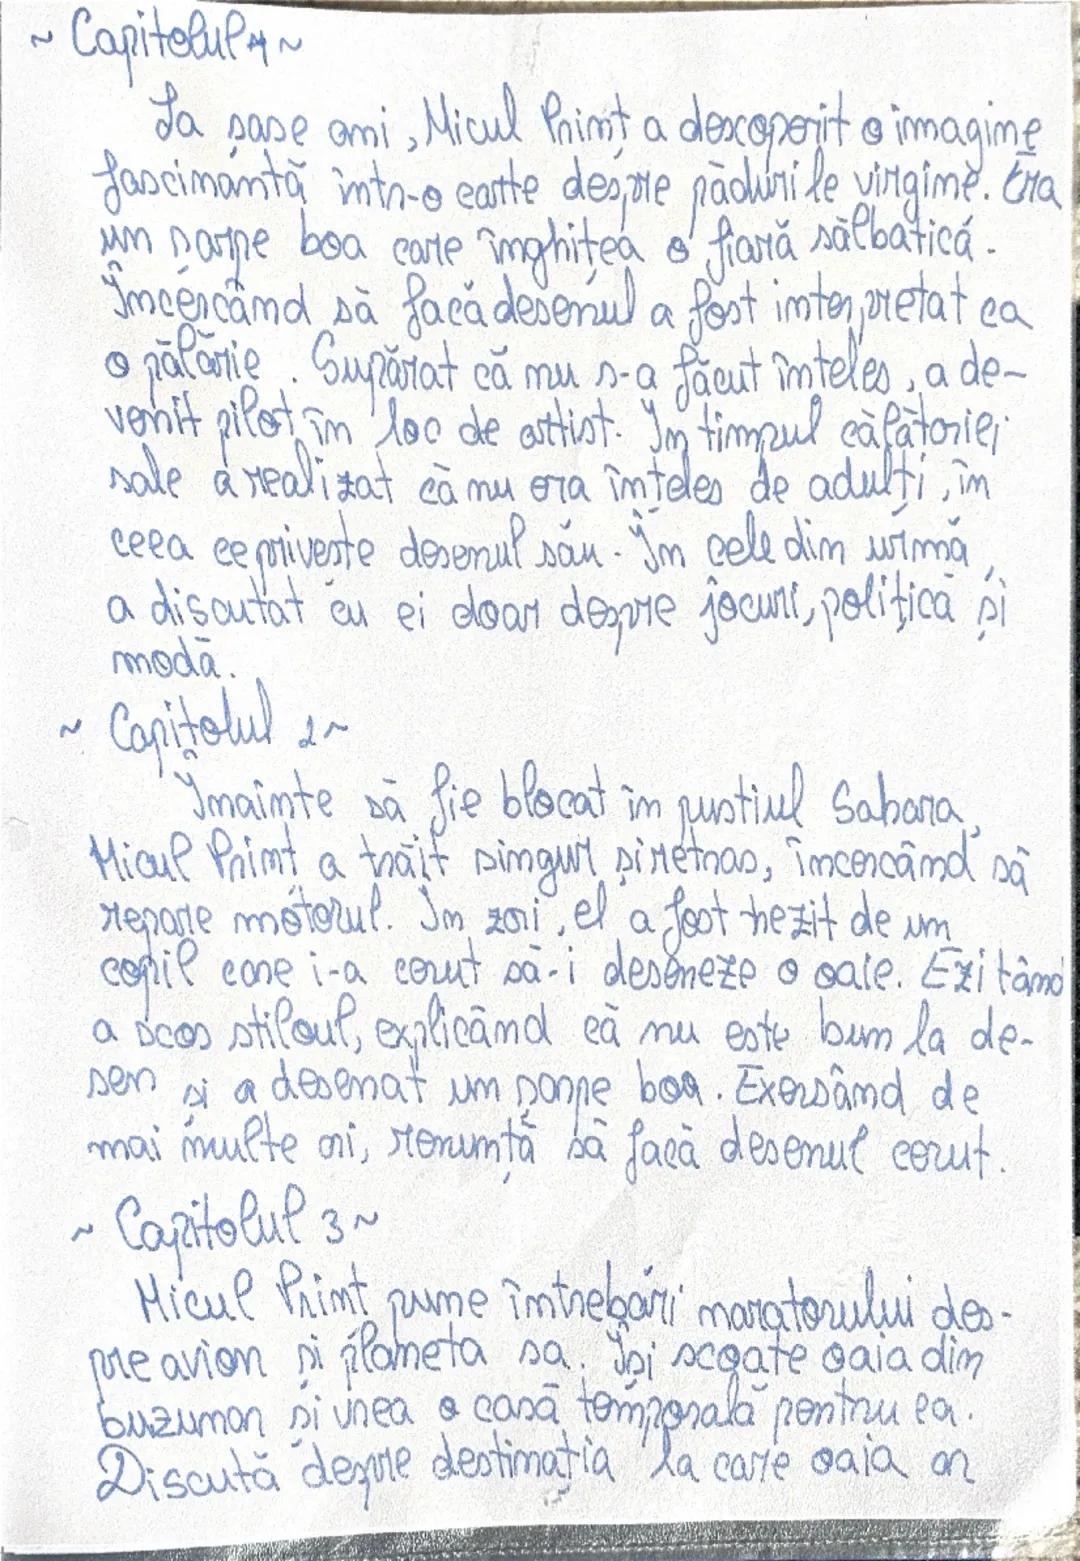 ~ Capitolul 1 ~
La șase ani, Micul Prinț a descoperit o imagine
fascinantă într-o carte despre pădurile virgine. Era
un șarpe boa care înghițea o fiară sălbatică.
Încercând să facă desenul a fost interpretat ca
o pălărie. Supărat că nu s-a făcut înțeles, a de-
venit pilot în loc de artist. În timpul călătoriei
sale a realizat că nu era înțeles de adulți, în
ceea ce privește desenul său. În cele din urmă,
a discutat cu ei doar despre jocuri, politică și
modă.
~ Capitolul 2 ~
Înainte să fie blocat în pustiul Sahara,
Micul Prinț a trăit singur și retras, încercând să
repare motorul. În zori, el a fost trezit de un
copil care i-a cerut să-i deseneze o oaie. Ezitând
a scos stiloul, explicând că nu este bun la de-
sen și a desenat un șarpe boa. Exersând de
mai multe ori, renunță să facă desenul cerut.
~ Capitolul 3 ~
Micul Prinț pune întrebări naratorului des-
pre avion și planeta sa. Își scoate oaia din
buzunar și vrea o casă temporală pentru ea.
Discută despre destinația la care oaia ar